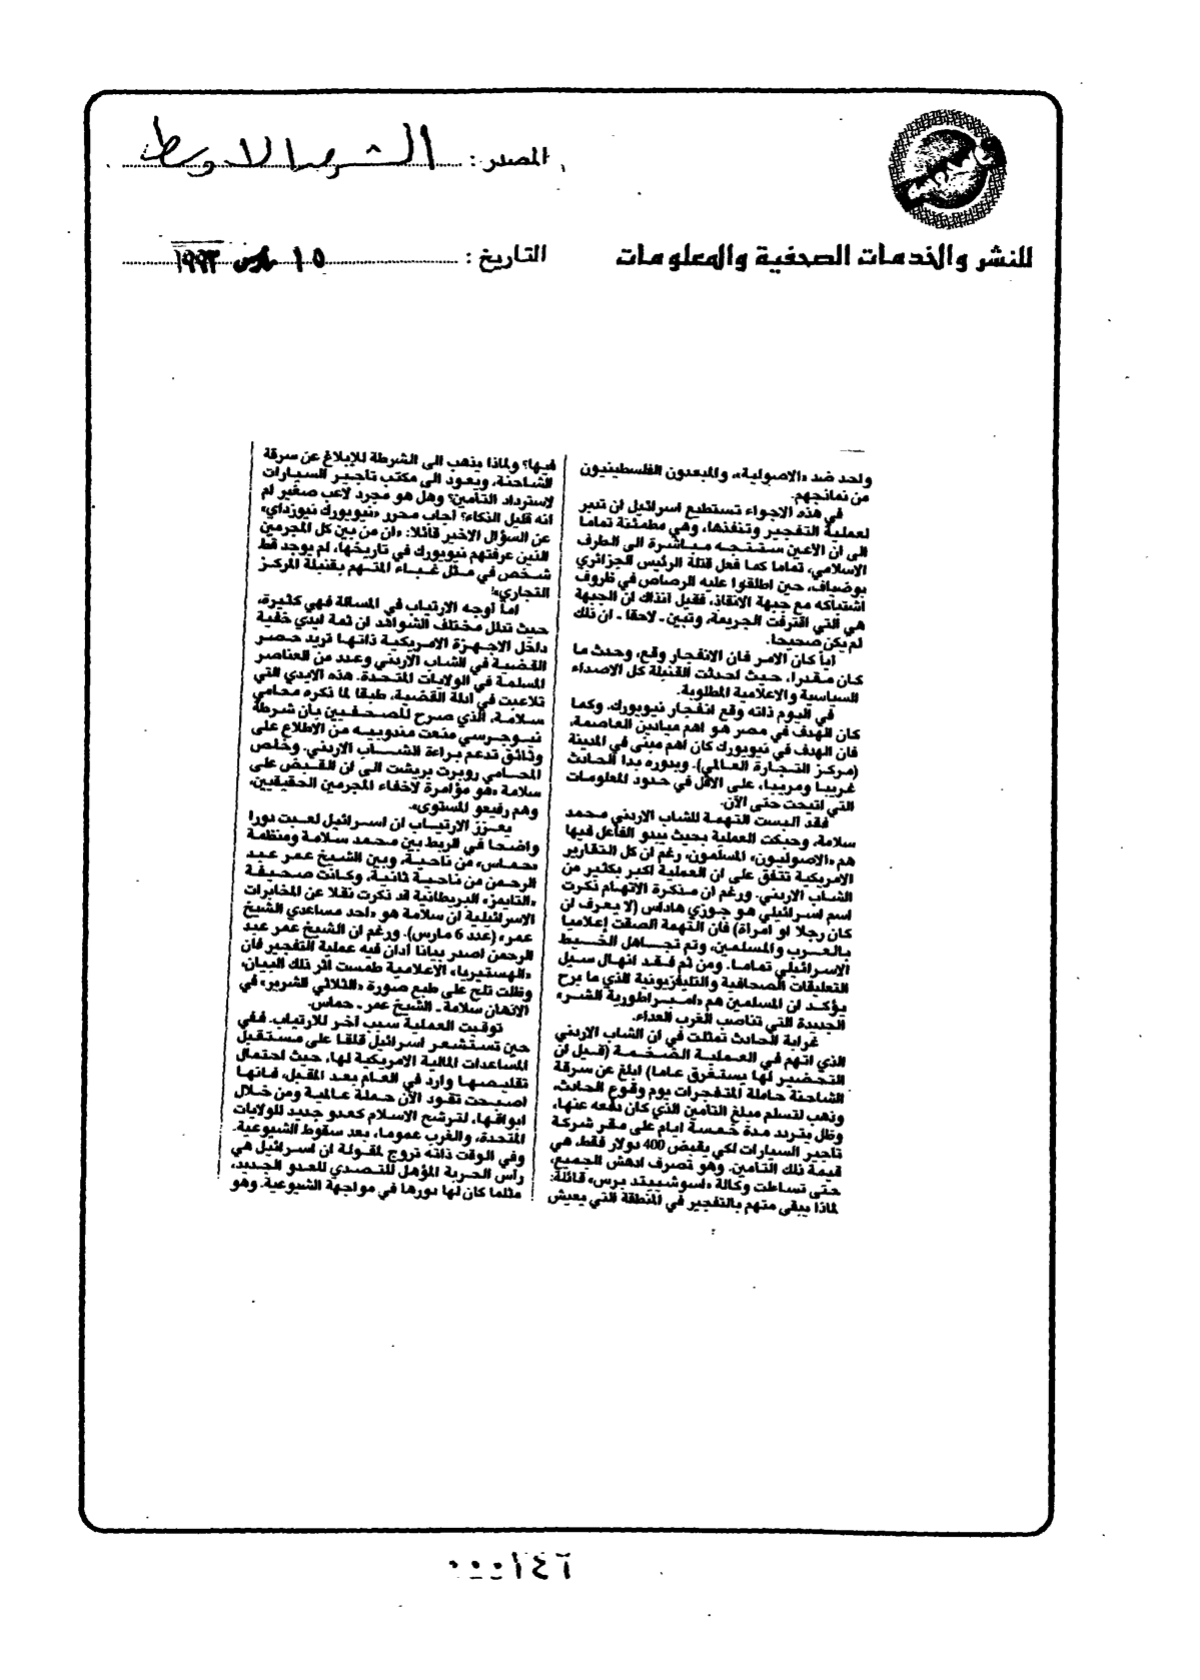 المصدر : الشرق الاوسط
للنشر والخدمات الصحفية والمعلومات
التاريخ : ١٥ مارس ١٩٩٣
واحد ضد «الاصولية»، والمبعدون الفلسطينيون
من نماذجهم.
في هذه الاجواء تستطيع اسرائيل ان تدبر
لعملية التفجير وتنفذها، وهي مطمئنة تماما
الى ان الاعين ستتجه مباشرة الى الطرف
الاسلامي، تماما كما فعل قتلة الرئيس الجزائري
بوضياف، حين اطلقوا عليه الرصاص في ظروف
اشتباكه مع جبهة الانقاذ، فقيل آنذاك ان الجبهة
هي التي اقترفت الجريمة، وتبين ـ لاحقا ـ ان ذلك
لم يكن صحيحا.
أيا كان الامر فان الانفجار وقع، وحدث ما
كان مقدرا، حيث احدثت القنبلة كل الاصداء
السياسية والاعلامية المطلوبة.
في اليوم ذاته وقع انفجار نيويورك. وكما
كان الهدف في مصر هو اهم ميادين العاصمة،
فان الهدف في نيويورك كان اهم مبنى في المدينة
(مركز التجارة العالمي). وبدوره بدا الحادث
غريبا ومريبا، على الاقل في حدود المعلومات
التي اتيحت حتى الآن.
فقد ألبست التهمة للشاب الاردني محمد
سلامة، وحبكت العملية بحيث يبدو الفاعل فيها
هم «الاصوليون» المسلمون، رغم ان كل التقارير
الامريكية تتفق على ان العملية اكبر بكثير من
الشاب الاردني. ورغم ان مذكرة الاتهام ذكرت
اسم اسرائيلي هو جوزي هاداس (لا يعرف ان
كان رجلا او امرأة) فان التهمة الصقت إعلاميا
بالعرب والمسلمين، وتم تجاهل الخيط
الاسرائيلي تماما. ومن ثم فقد انهال سيل
التعليقات الصحافية والتليفزيونية الذي ما برح
يؤكد ان المسلمين هم «امبراطورية الشر»
الجديدة التي تناصب الغرب العداء.
غرابة الحادث تمثلت في ان الشاب الاردني
الذي اتهم في العملية الضخمة (قيل ان
التحضير لها يستغرق عاما) ابلغ عن سرقة
الشاحنة حاملة المتفجرات يوم وقوع الحادث،
وذهب لتسلم مبلغ التأمين الذي كان دفعه عنها،
وظل يتردد مدة خمسة ايام على مقر شركة
تأجير السيارات لكي يقبض 400 دولار فقط، هي
قيمة ذلك التأمين. وهو تصرف ادهش الجميع،
حتى تساءلت وكالة «اسوشييتد برس» قائلة:
لماذا يبقى متهم بالتفجير في المنطقة التي يعيش
فيها؟ ولماذا يذهب الى الشرطة للإبلاغ عن سرقة
الشاحنة، ويعود الى مكتب تأجير السيارات
لاسترداد التأمين؟ وهل هو مجرد لاعب صغير ام
انه قليل الذكاء؟ أجاب محرر «نيويورك نيوزداي»
عن السؤال الاخير قائلا: «ان من بين كل المجرمين
الذين عرفتهم نيويورك في تاريخها، لم يوجد قط
شخص في مثل غباء المتهم بقنبلة المركز
التجاري»!
اما أوجه الارتياب في المسألة فهي كثيرة،
حيث تدلل مختلف الشواهد ان ثمة ايدي خفية
داخل الاجهزة الامريكية ذاتها تريد حصر
القضية في الشاب الاردني وعدد من العناصر
المسلمة في الولايات المتحدة. هذه الايدي التي
تلاعبت في ادلة القضية، طبقا لما ذكره محامي
سلامة، الذي صرح للصحفيين بأن شرطة
نيوجرسي منعت مندوبيه من الاطلاع على
وثائق تدعم براءة الشاب الاردني. وخلص
المحامي روبرت بريشت الى ان القبض على
سلامة «هو مؤامرة لاخفاء المجرمين الحقيقيين،
وهم رفيعو المستوى».
يعزز الارتياب ان اسرائيل لعبت دورا
واضحا في الربط بين محمد سلامة ومنظمة
«حماس» من ناحية، وبين الشيخ عمر عبد
الرحمن من ناحية ثانية، وكانت صحيفة
«التايمز» البريطانية قد ذكرت نقلا عن المخابرات
الإسرائيلية ان سلامة هو «احد مساعدي الشيخ
عمر» (عدد 6 مارس). ورغم ان الشيخ عمر عبد
الرحمن اصدر بيانا أدان فيه عملية التفجير فان
«الهستيريا» الإعلامية طمست اثر ذلك البيان،
وظلت تلح على طبع صورة «الثلاثي الشرير» في
الاذهان سلامة ـ الشيخ عمر ـ حماس.
توقيت العملية سبب آخر للارتياب. ففي
حين تستشعر اسرائيل قلقا على مستقبل
المساعدات المالية الامريكية لها، حيث احتمال
تقليصها وارد في العام بعد المقبل، فانها
اصبحت تقود الآن حملة عالمية ومن خلال
ابواقها، لترشح الاسلام كعدو جديد للولايات
المتحدة، والغرب عموما، بعد سقوط الشيوعية.
وفي الوقت ذاته تروج لمقولة ان اسرائيل هي
رأس الحربة المؤهل للتصدي للعدو الجديد،
مثلما كان لها دورها في مواجهة الشيوعية. وهو